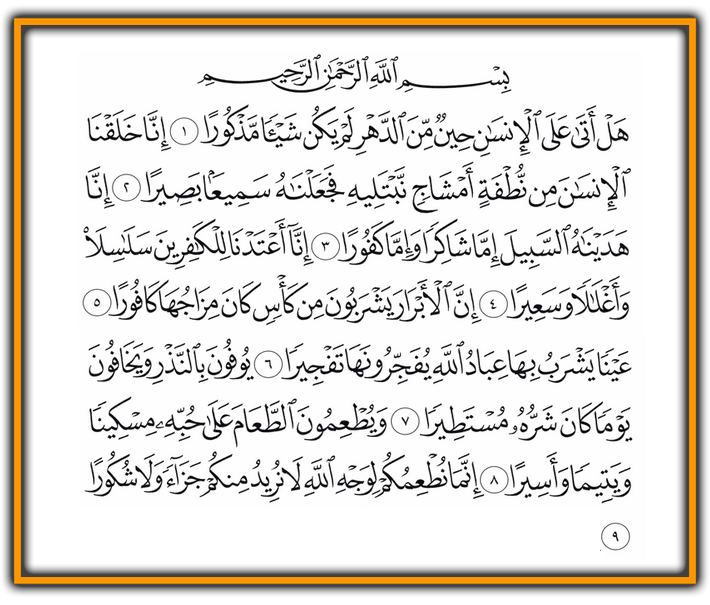 بِسْمِ ٱللَّهِ ٱلرَّحْمَٰنِ ٱلرَّحِيمِ
هَلْ أَتَىٰ عَلَى ٱلْإِنسَٰنِ حِينٌ مِّنَ ٱلدَّهْرِ لَمْ يَكُن شَيْـًٔا مَّذْكُورًا ١ إِنَّا خَلَقْنَا
ٱلْإِنسَٰنَ مِن نُّطْفَةٍ أَمْشَاجٍ نَّبْتَلِيهِ فَجَعَلْنَٰهُ سَمِيعًۢا بَصِيرًا ٢ إِنَّا
هَدَيْنَٰهُ ٱلسَّبِيلَ إِمَّا شَاكِرًا وَإِمَّا كَفُورًا ٣ إِنَّآ أَعْتَدْنَا لِلْكَٰفِرِينَ سَلَٰسِلَا۟
وَأَغْلَٰلًا وَسَعِيرًا ٤ إِنَّ ٱلْأَبْرَارَ يَشْرَبُونَ مِن كَأْسٍ كَانَ مِزَاجُهَا كَافُورًا ٥
عَيْنًا يَشْرَبُ بِهَا عِبَادُ ٱللَّهِ يُفَجِّرُونَهَا تَفْجِيرًا ٦ يُوفُونَ بِٱلنَّذْرِ وَيَخَافُونَ
يَوْمًا كَانَ شَرُّهُۥ مُسْتَطِيرًا ٧ وَيُطْعِمُونَ ٱلطَّعَامَ عَلَىٰ حُبِّهِۦ مِسْكِينًا
وَيَتِيمًا وَأَسِيرًا ٨ إِنَّمَا نُطْعِمُكُمْ لِوَجْهِ ٱللَّهِ لَا نُرِيدُ مِنكُمْ جَزَآءً وَلَا شُكُورًا
٩